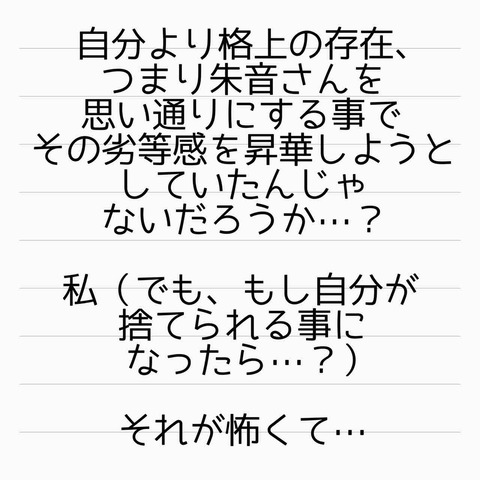 自分より格上の存在、
つまり朱音さんを
思い通りにする事で
その劣等感を昇華しようと
していたんじゃ
ないだろうか…？
私（でも、もし自分が
捨てられる事に
なったら…？）
それが怖くて…